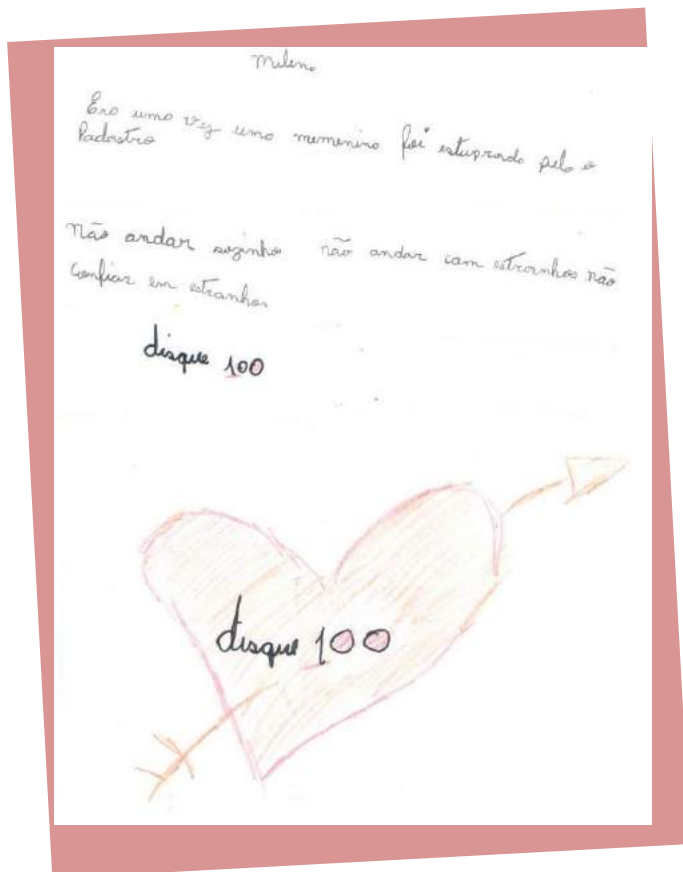 Milena
Era uma vez uma memenina foi estuprada pelo o
Padastro
Não andar sozinho não andar com estrornhos não
confiar em estranhos
disque 100
disque 100